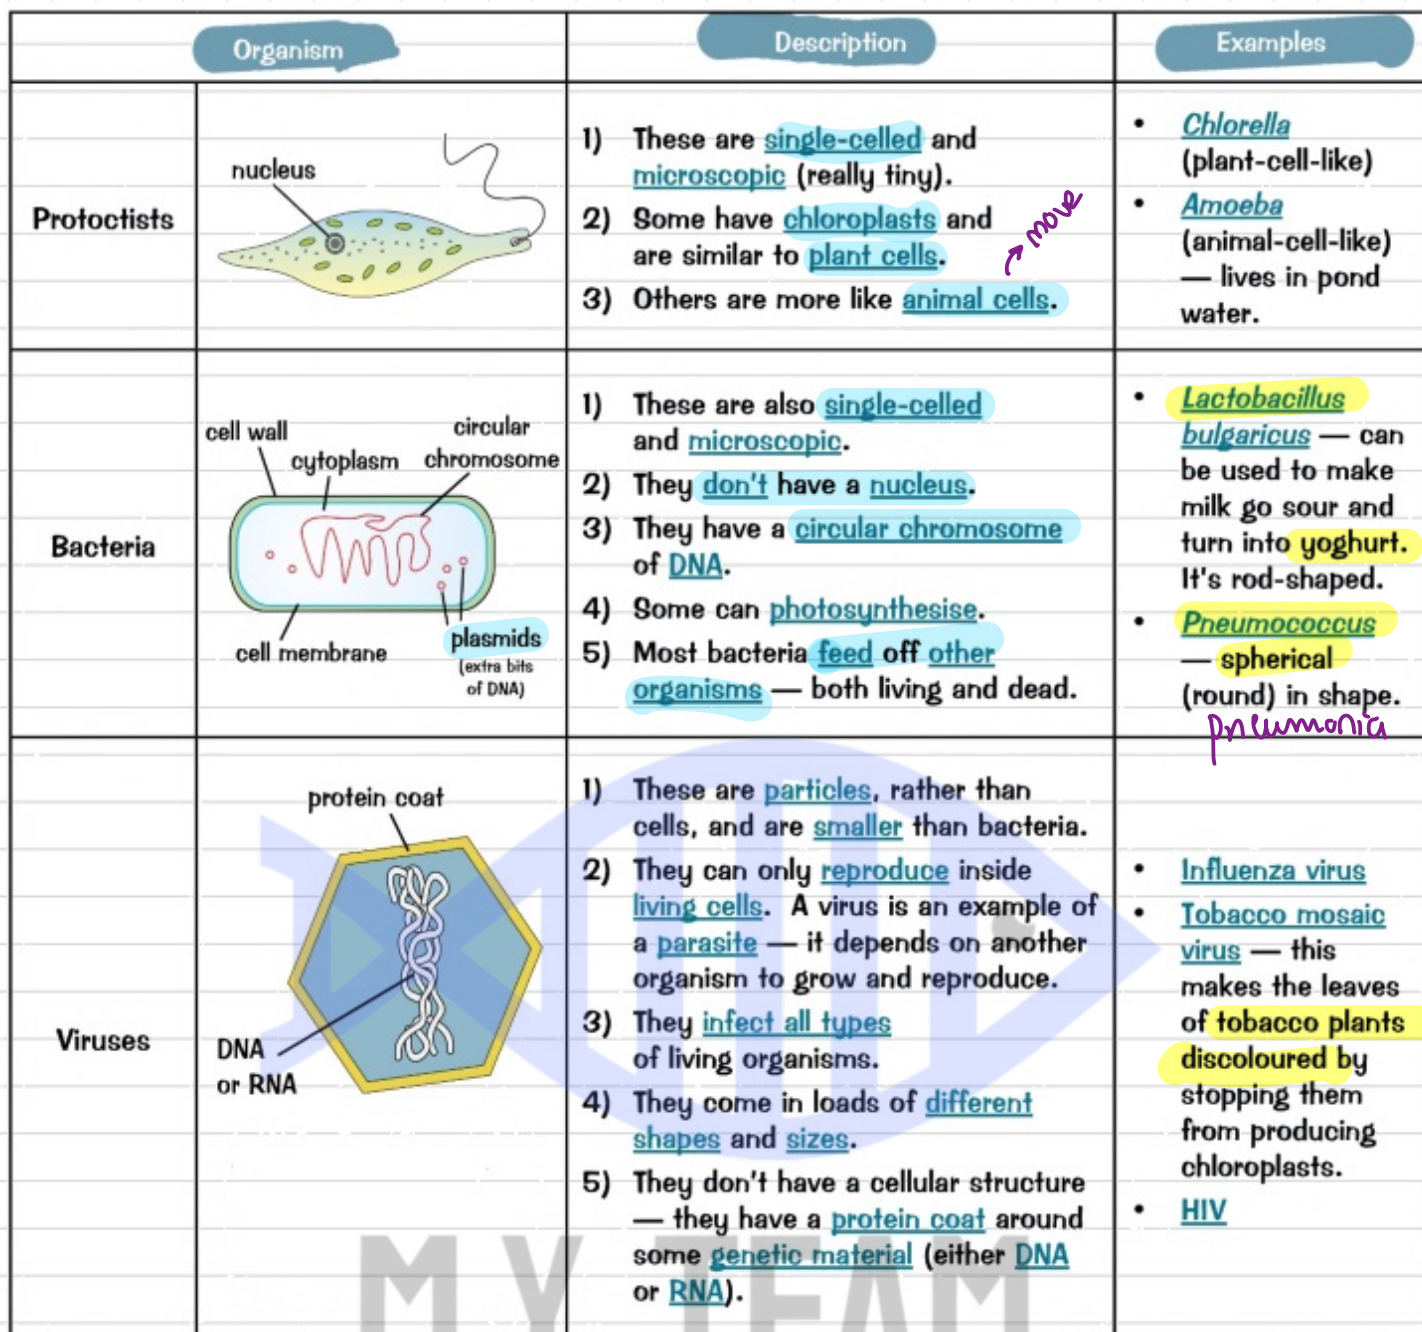 Organism
Description
Examples
Protoctists
nucleus
1) These are single-celled and
microscopic (really tiny).
2) Some have chloroplasts and
are similar to plant cells.
3) Others are more like animal cells.
→ move
• Chlorella
(plant-cell-like)
• Amoeba
(animal-cell-like)
— lives in pond
water.
Bacteria
cell wall
cytoplasm
circular
chromosome
cell membrane
plasmids
(extra bits
of DNA)
1) These are also single-celled
and microscopic.
2) They don't have a nucleus.
3) They have a circular chromosome
of DNA.
4) Some can photosynthesise.
5) Most bacteria feed off other
organisms — both living and dead.
• Lactobacillus
bulgaricus — can
be used to make
milk go sour and
turn into yoghurt.
It's rod-shaped.
• Pneumococcus
— spherical
(round) in shape.
pneumonia
Viruses
protein coat
DNA
or RNA
1) These are particles, rather than
cells, and are smaller than bacteria.
2) They can only reproduce inside
living cells. A virus is an example of
a parasite — it depends on another
organism to grow and reproduce.
3) They infect all types
of living organisms.
4) They come in loads of different
shapes and sizes.
5) They don't have a cellular structure
— they have a protein coat around
some genetic material (either DNA
or RNA).
• Influenza virus
• Tobacco mosaic
virus — this
makes the leaves
of tobacco plants
discoloured by
stopping them
from producing
chloroplasts.
• HIV
MY TEAM